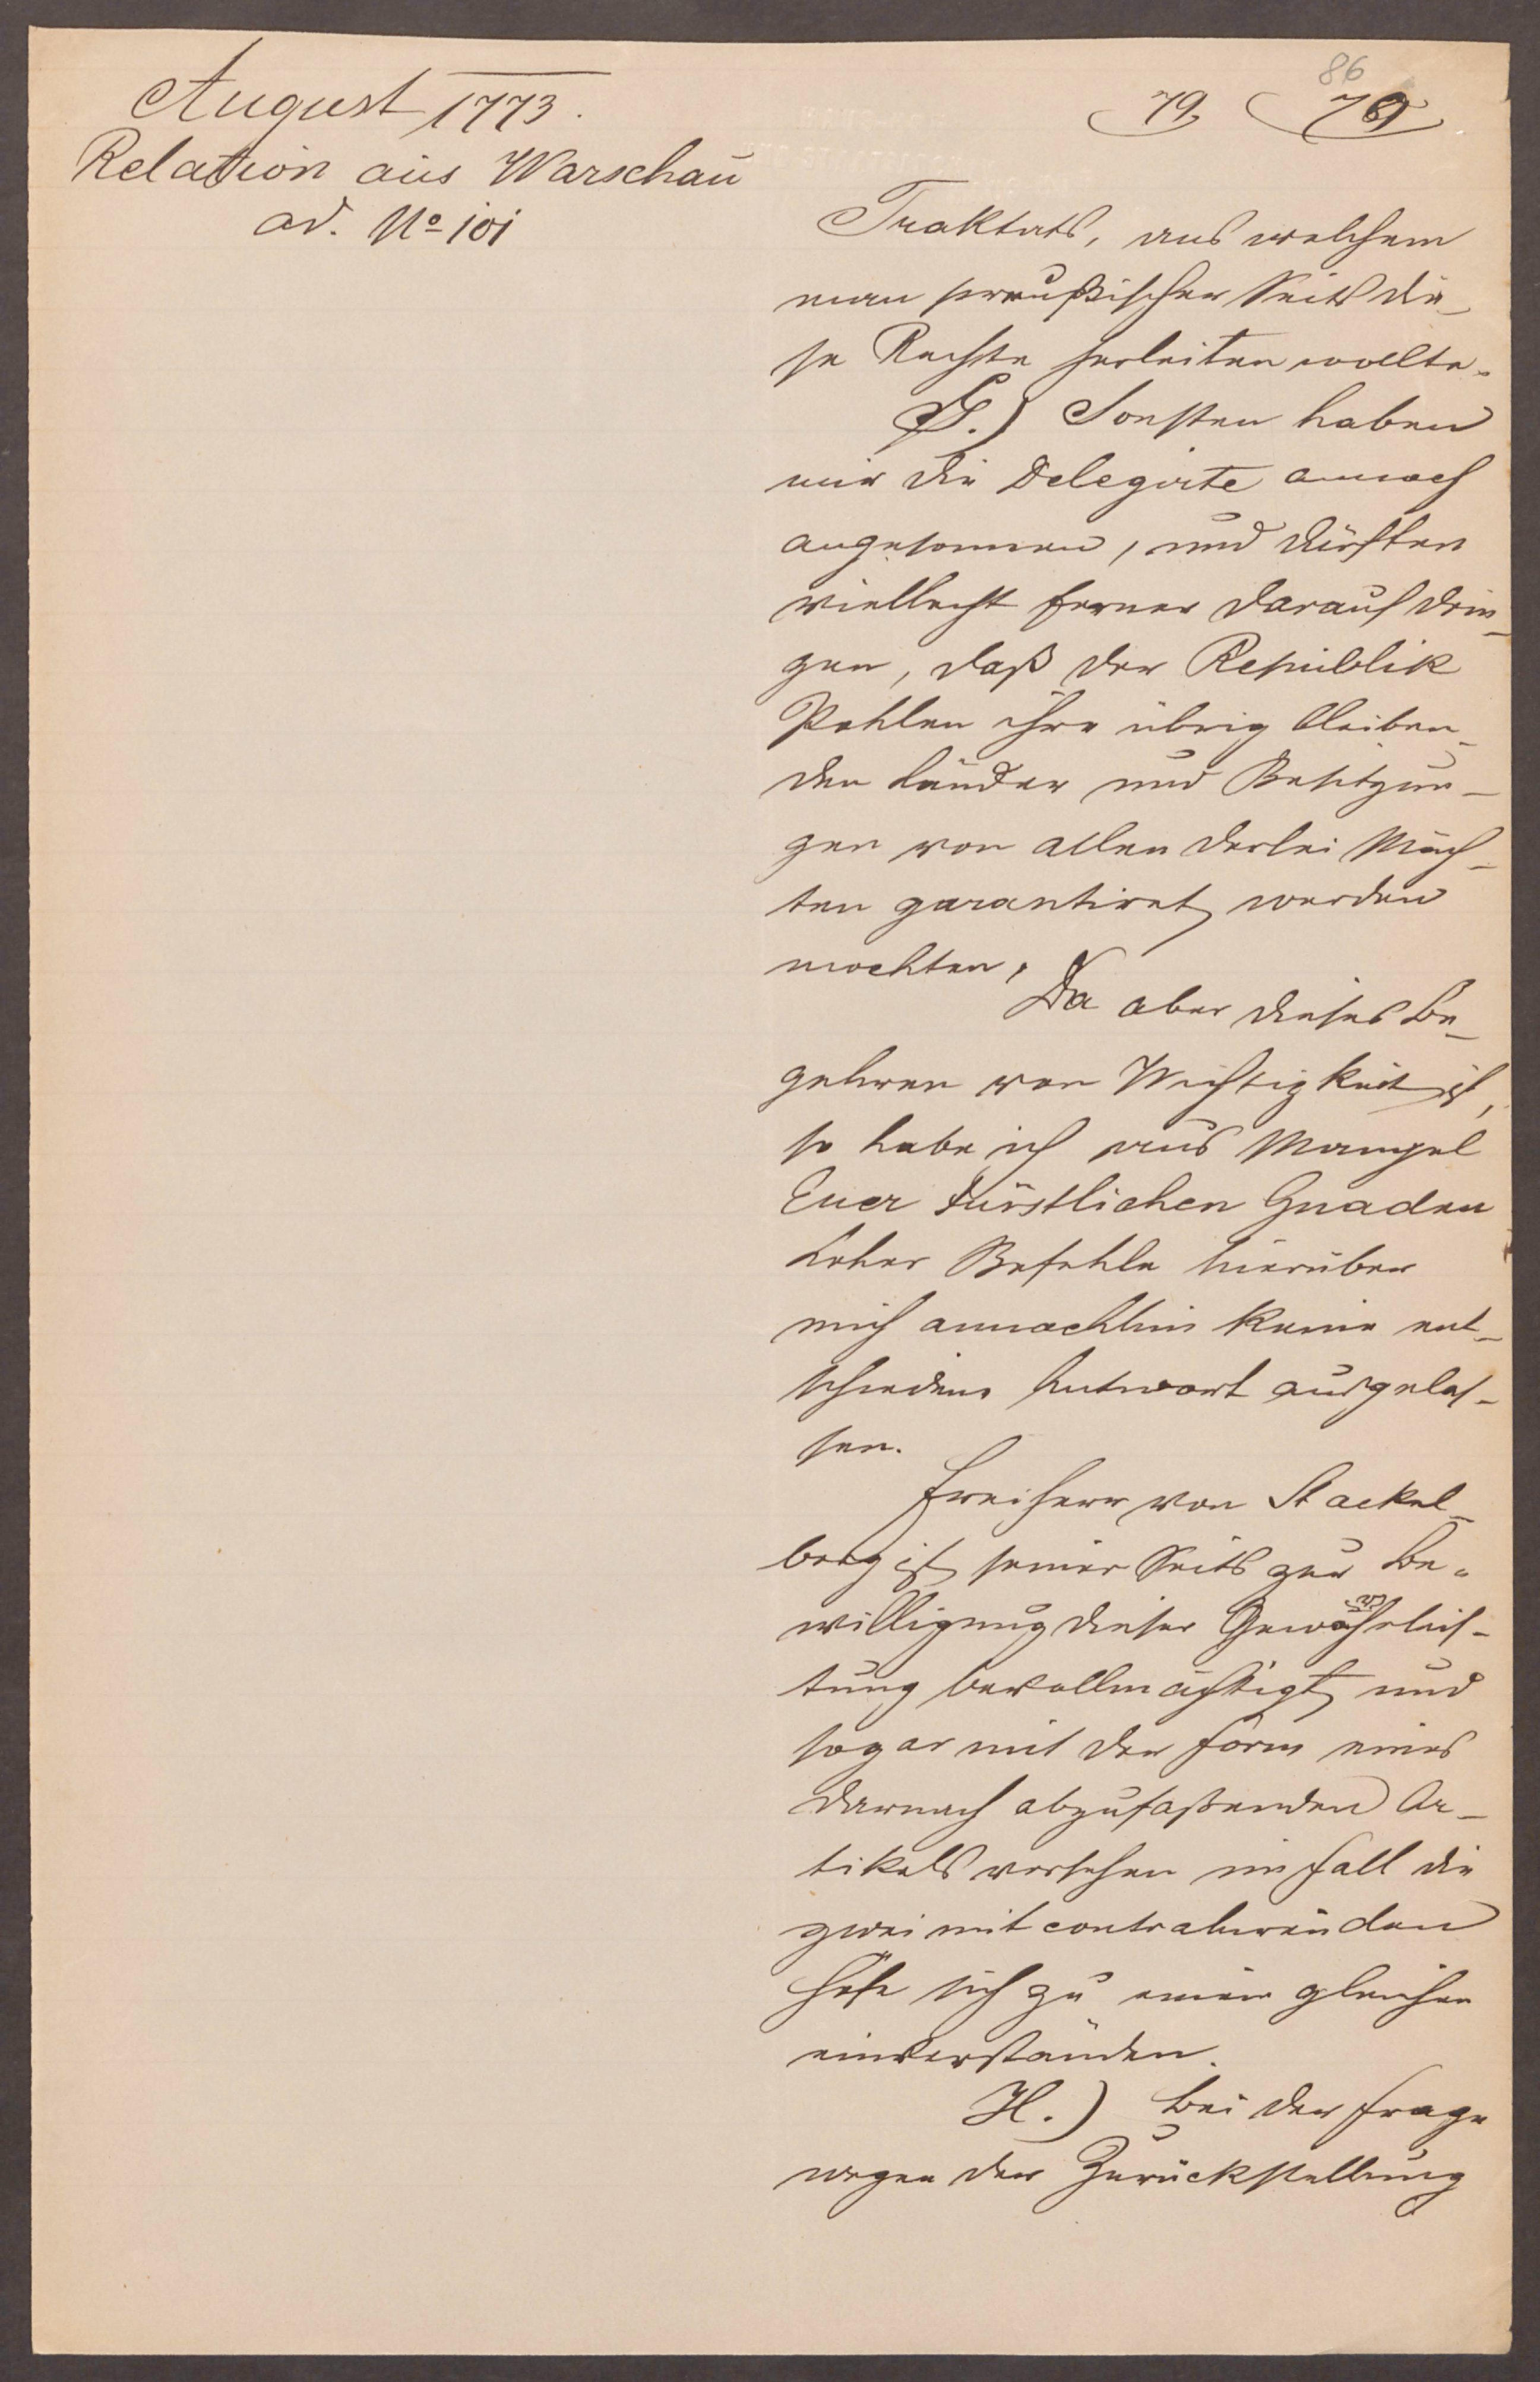 August 1773.
Relation aus Warschau
ad. No 101
86
79
Traktats, aus welchem
man preußischer Seits die-
se Rechte herleiten wollte.
G.) Sonsten haben
mir die Delegirte annoch
angesonnen, und dürften
vielleicht ferner darauf drin-
gen, daß der Republik
Pohlen ihre übrig bleiben-
den Länder und Besitzun-
gen von allen Mäch-
ten garantiret werden
mochten.
Da aber dieses Be-
gehren von Wichtigkeit ist,
so habe ich aus Mangel
Euer Fürstlichen Gnaden
hoher Befehle hierüber
mich annochhin keine ent-
schiedene Antwort ausgelas-
sen.
Freiherr von Stackel-
berg ist seiner Seits zur Be-
willigung dieser Gewährleis-
tung bevollmächtigt und
sogar mit der Form eines
darnach abzufaßenden Ar-
tikels versehen im Fall die
zwei mit contrahirenden
Höfe sich zu einer gleichen
einverständen.
H.) Bei der Frage
wegen der Zurückstellung